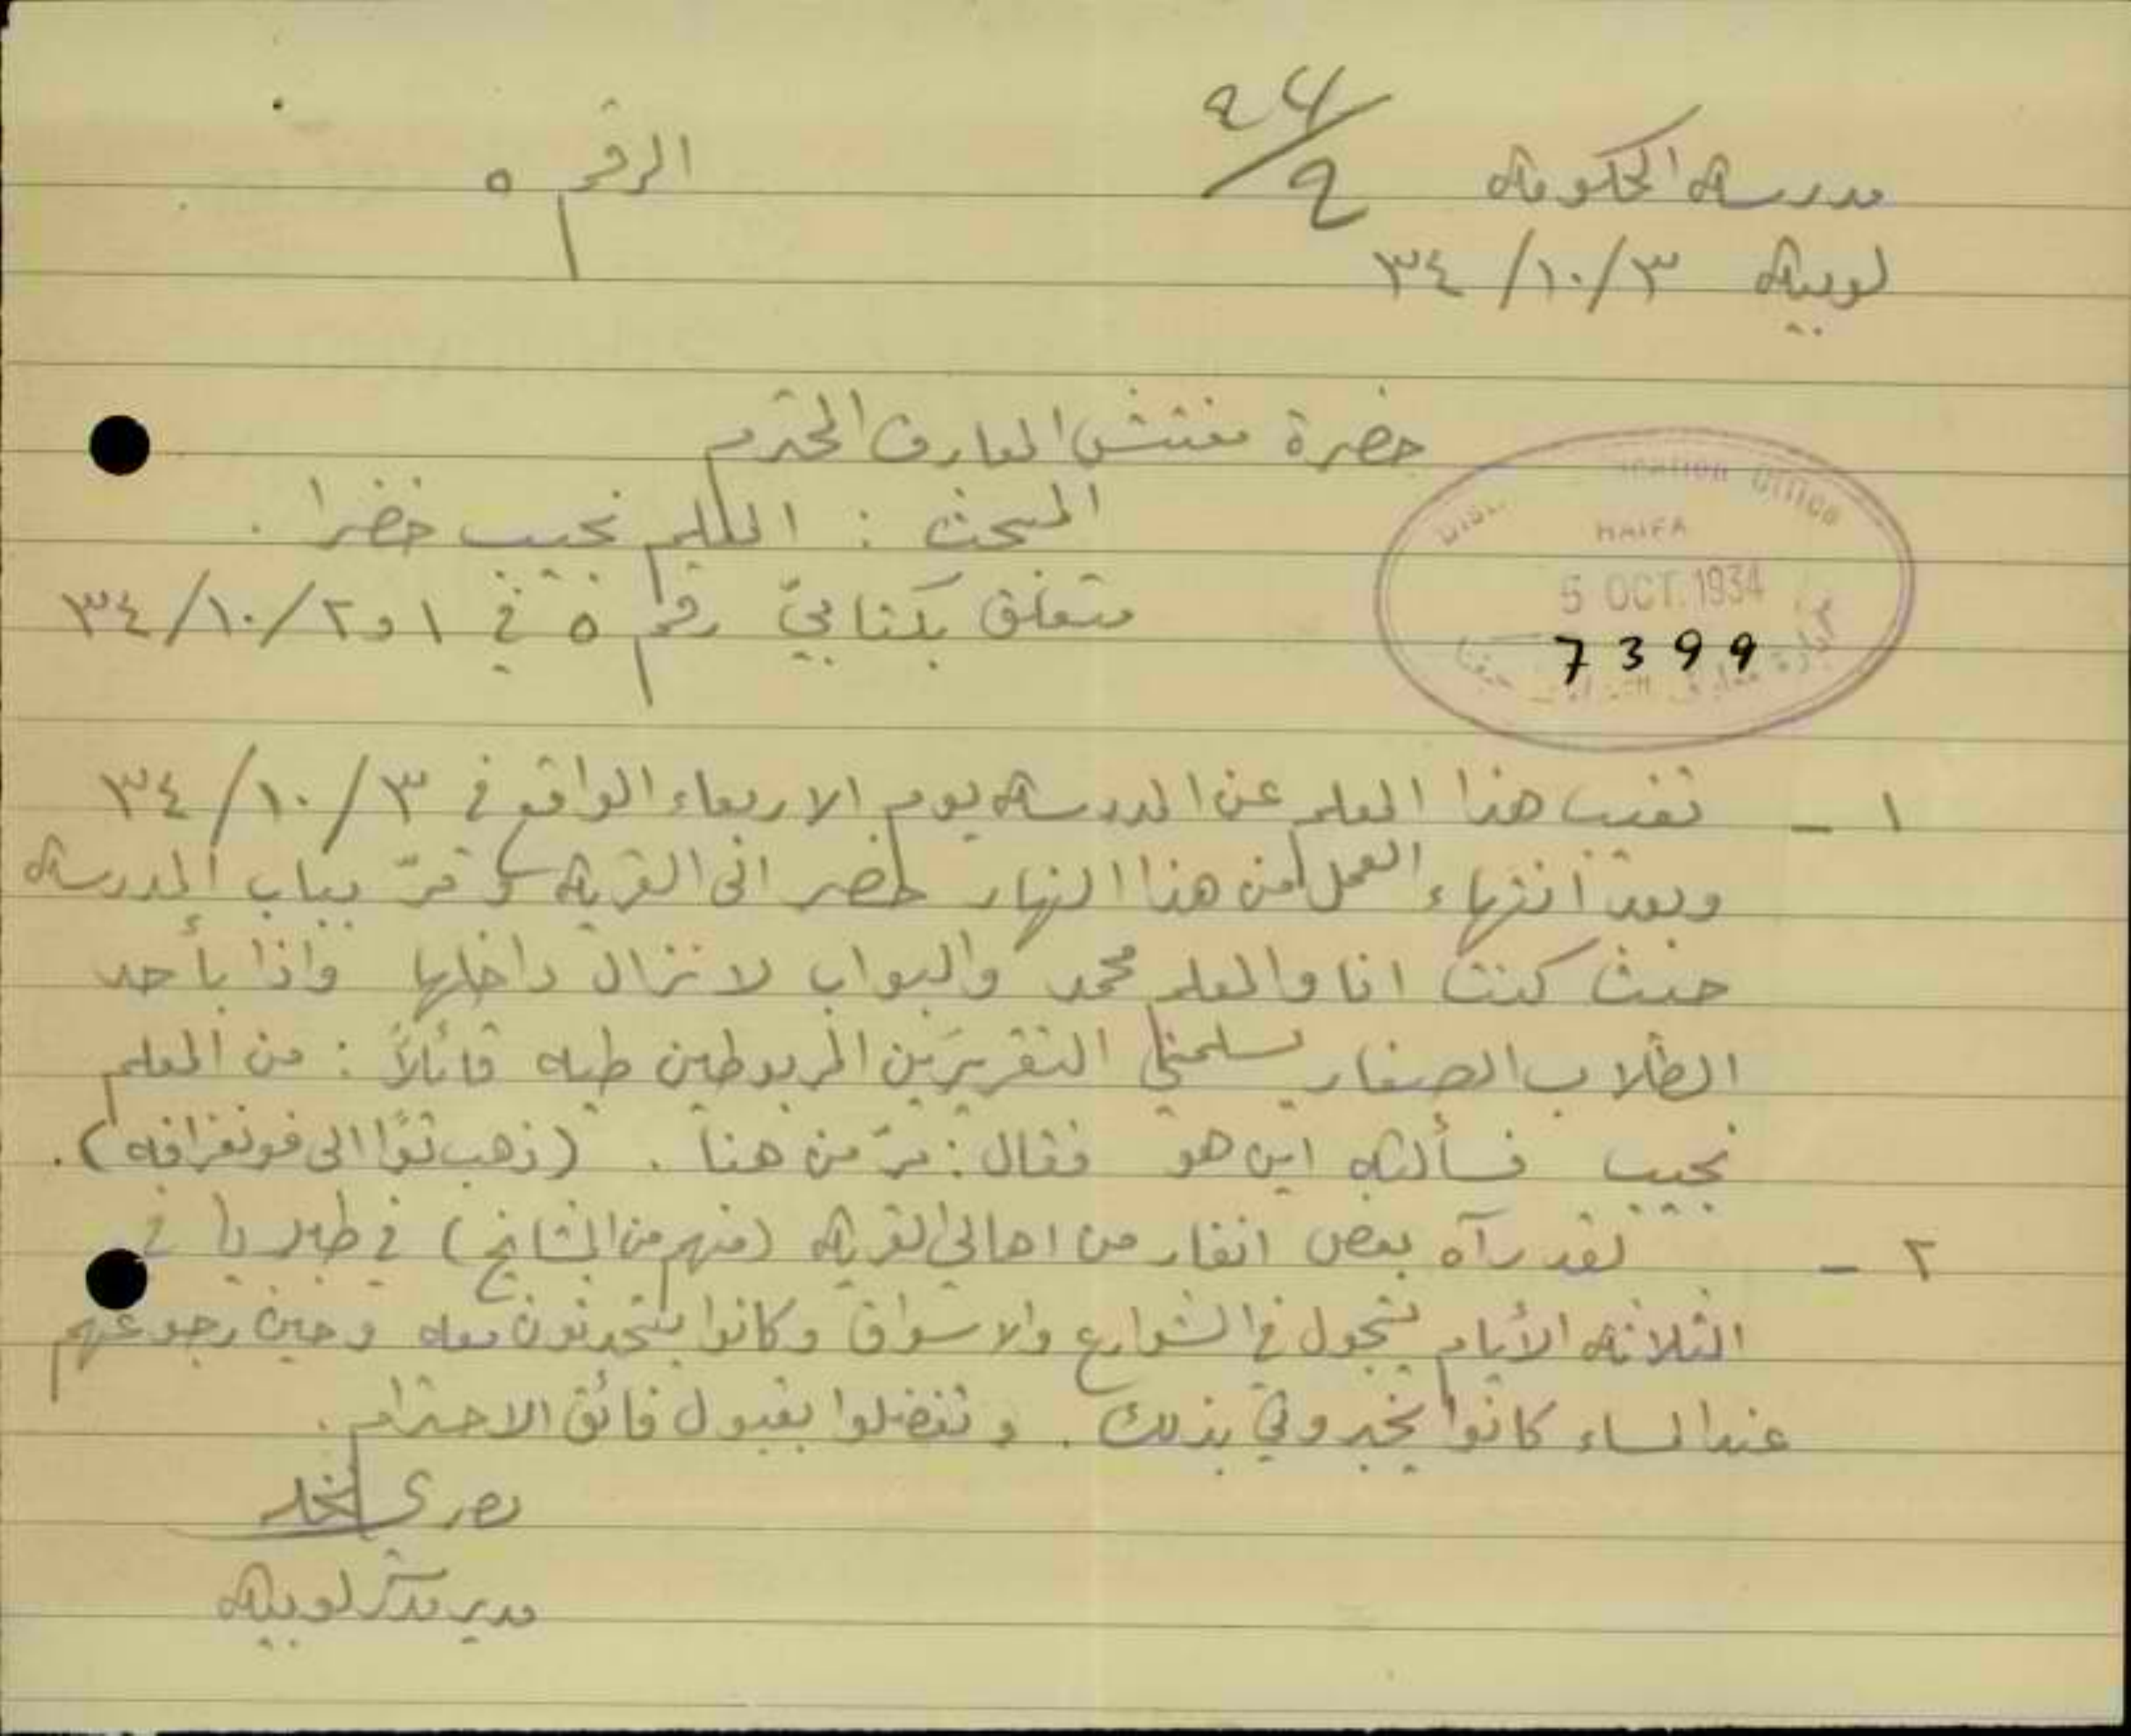 مدرسة الحكومة
الرقم ٥
لوبية ٣/١٠/٣٤
حضرة مفتش المعارف المحترم
المبحث : المعلم نجيب خضرا .
متعلق بكتابيّ رقم ٥ في ١ و٢/١٠/٣٤
HAIFA
5 OCT. 1934
7399
١ - تغيب هذا المعلم عن المدرسة يوم الاربعاء الواقع في ٣/١٠/٣٤
وبعد انتهاء العمل من هذا النهار حضر الى القرية و مرّ بباب المدرسة
حيث كنت انا والمعلم محمد والبواب لا نزال داخلها واذا بأحد
الطلاب الصغار يسلمني التقريرين المربوطين طيه قائلاً : من المعلم
نجيب فسألته اين هو فقال : مرّ من هنا . (ذهب توًا الى فونغرافه) .
٢ - لقد رآه بعض انفار من اهالي القرية (منهم من المشايخ) في طبريا في
الثلاثة الأيام يتجول في الشوارع والاسواق وكانوا يتحدثون معه وحين رجوعهم
عند المساء كانوا يخبروني بذلك . وتفضلوا بقبول فائق الاحترام .
مدير مدرسة لوبية